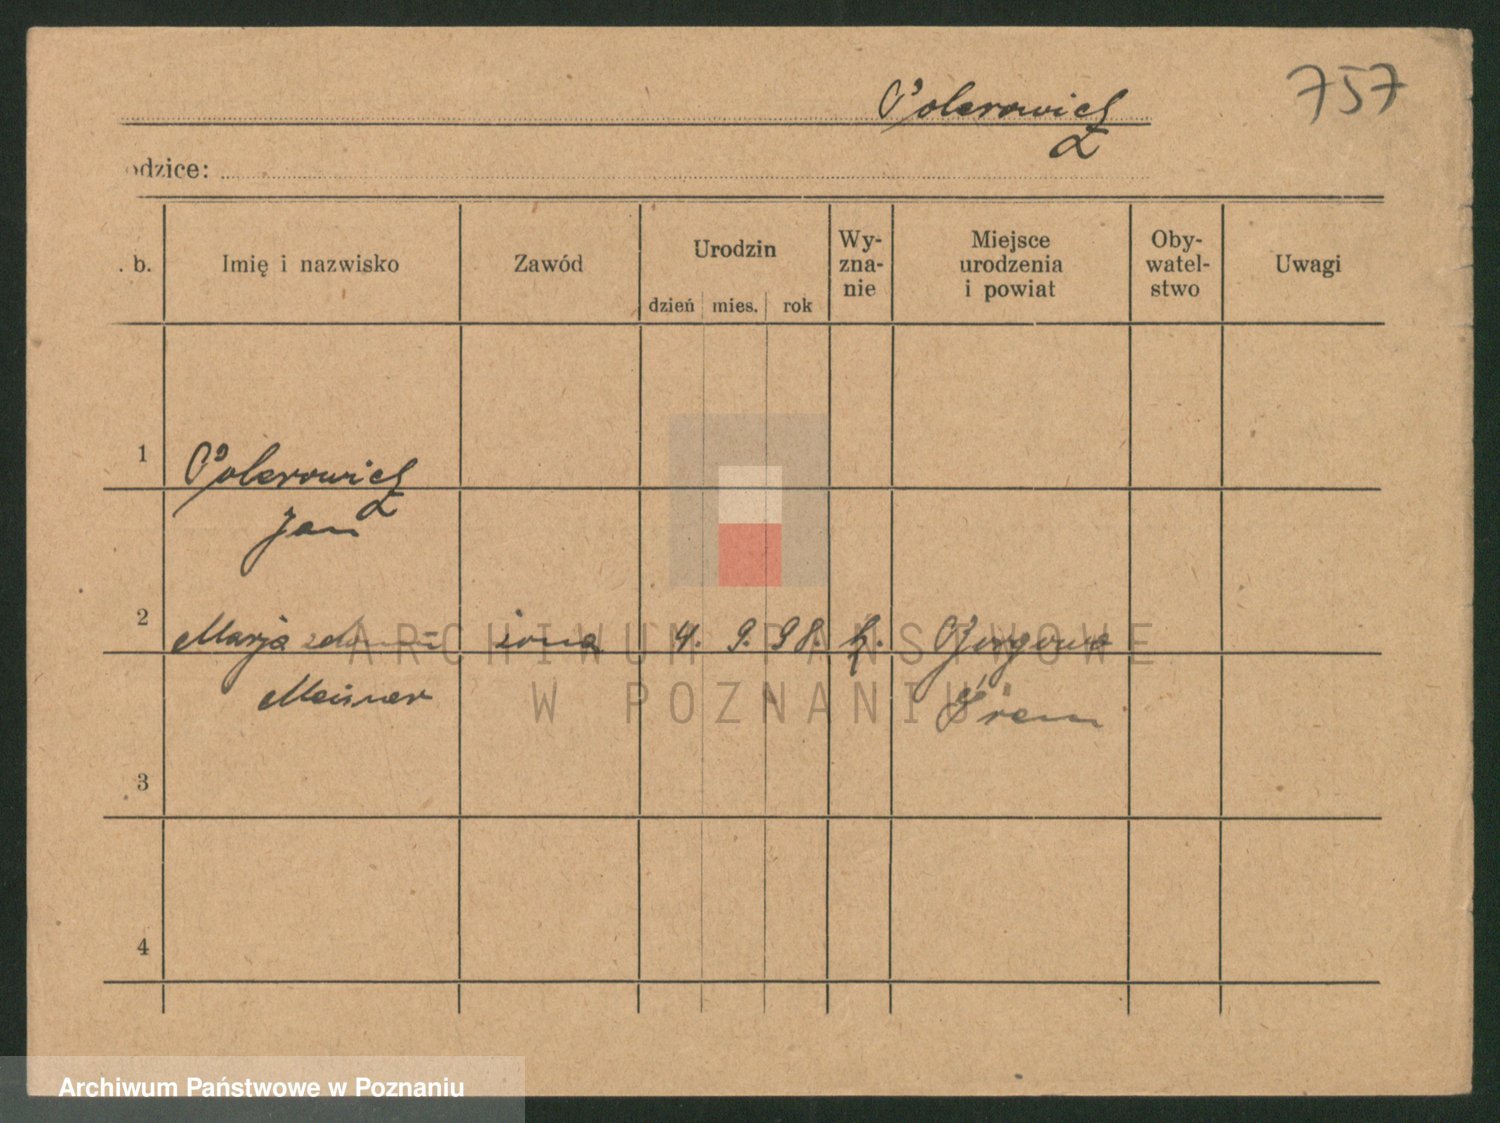 757
Polerowicz
odzice:
. b. Imię i nazwisko Zawód Urodzin dzień mies. rok Wy-zna-nie Miejsce urodzenia i powiat Oby-watel-stwo Uwagi
1 Polerowicz
Jan
2 Marja żona 4. 9. 98. k.
Meisner Śrem
3
4
ARCHIWUM PAŃSTWOWE
W POZNANIU
Archiwum Państwowe w Poznaniu